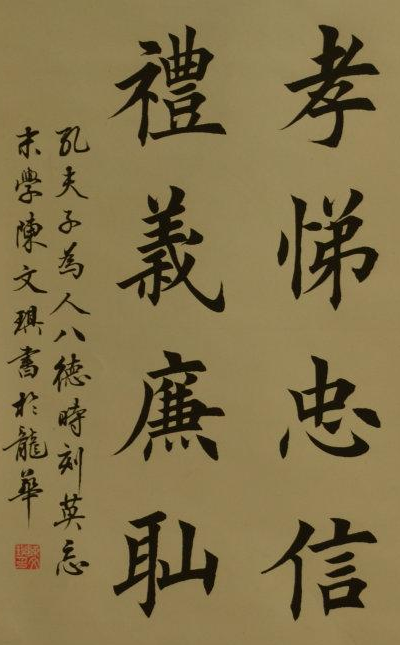 孝悌忠信
禮義廉耻
孔夫子為人八德時刻莫忘
末學陳文琪書於龍華